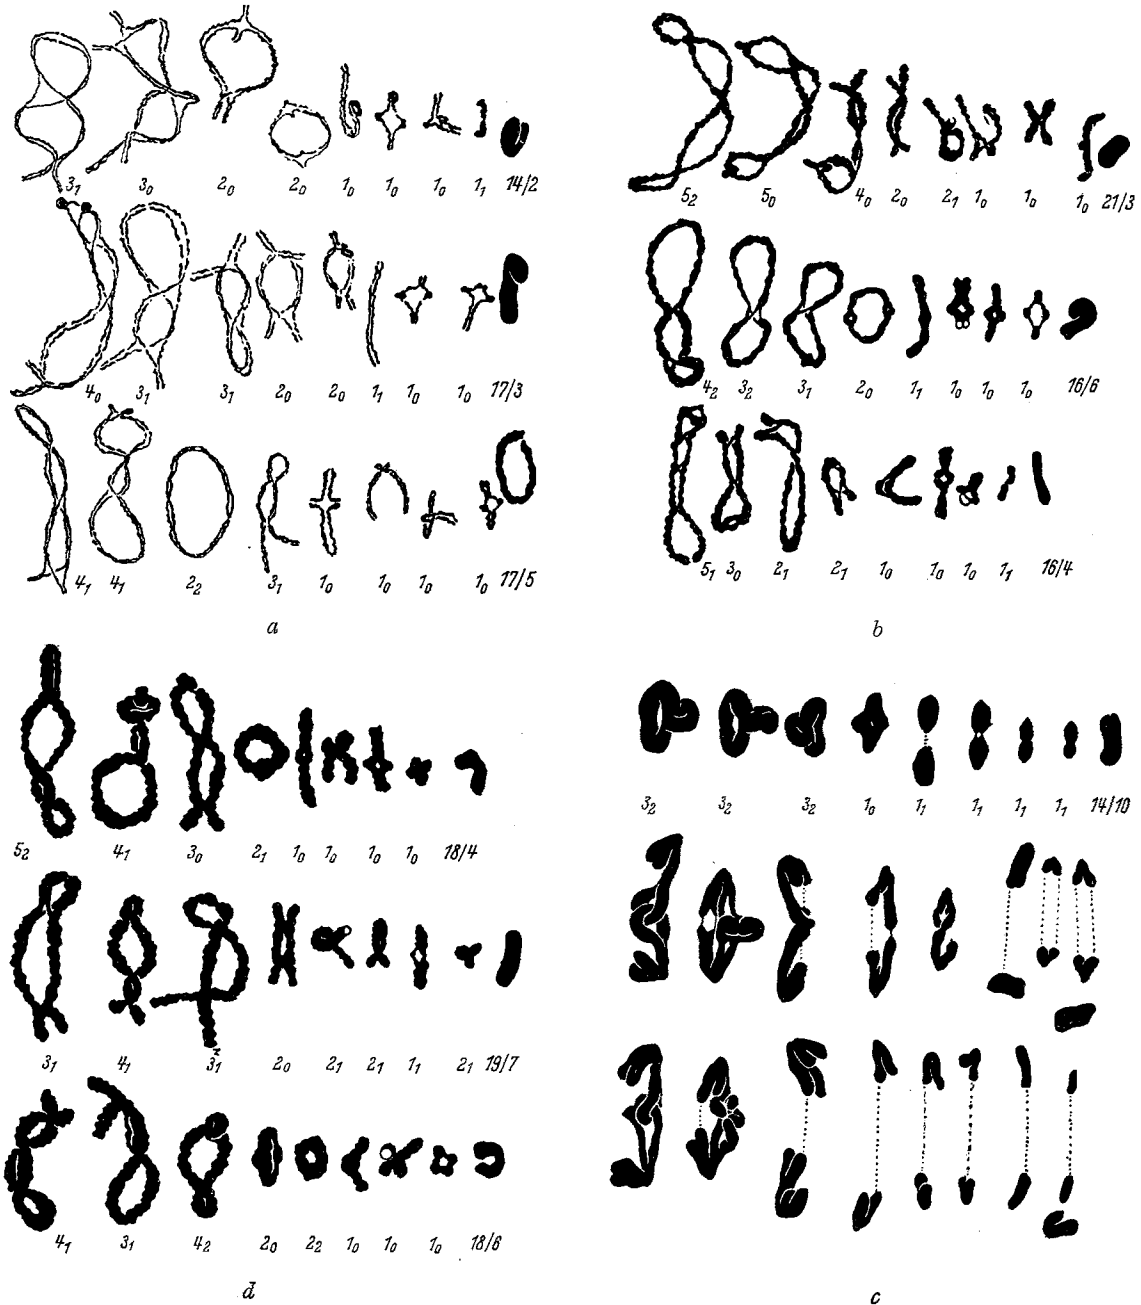 3₁ 3₀ 2₀ 2₀ 1₀ 1₀ 1₀ 1₁ 14/2
4₀ 3₁ 3₁ 2₀ 2₀ 1₁ 1₀ 1₀ 17/3
4₁ 4₁ 2₂ 3₁ 1₀ 1₀ 1₀ 1₀ 17/5
a
5₂ 5₀ 4₀ 2₀ 2₁ 1₀ 1₀ 1₀ 21/3
4₂ 3₂ 3₁ 2₀ 1₁ 1₀ 1₀ 1₀ 16/6
5₁ 3₀ 2₁ 2₁ 1₀ 1₀ 1₀ 1₁ 16/4
b
5₂ 4₁ 3₀ 2₁ 1₀ 1₀ 1₀ 1₀ 18/4
3₁ 4₁ 3₁ 2₀ 2₁ 2₁ 1₁ 2₁ 19/7
4₁ 3₁ 4₂ 2₀ 2₂ 1₀ 1₀ 1₀ 18/6
d
3₂ 3₂ 3₂ 1₀ 1₁ 1₁ 1₁ 1₁ 14/10
c